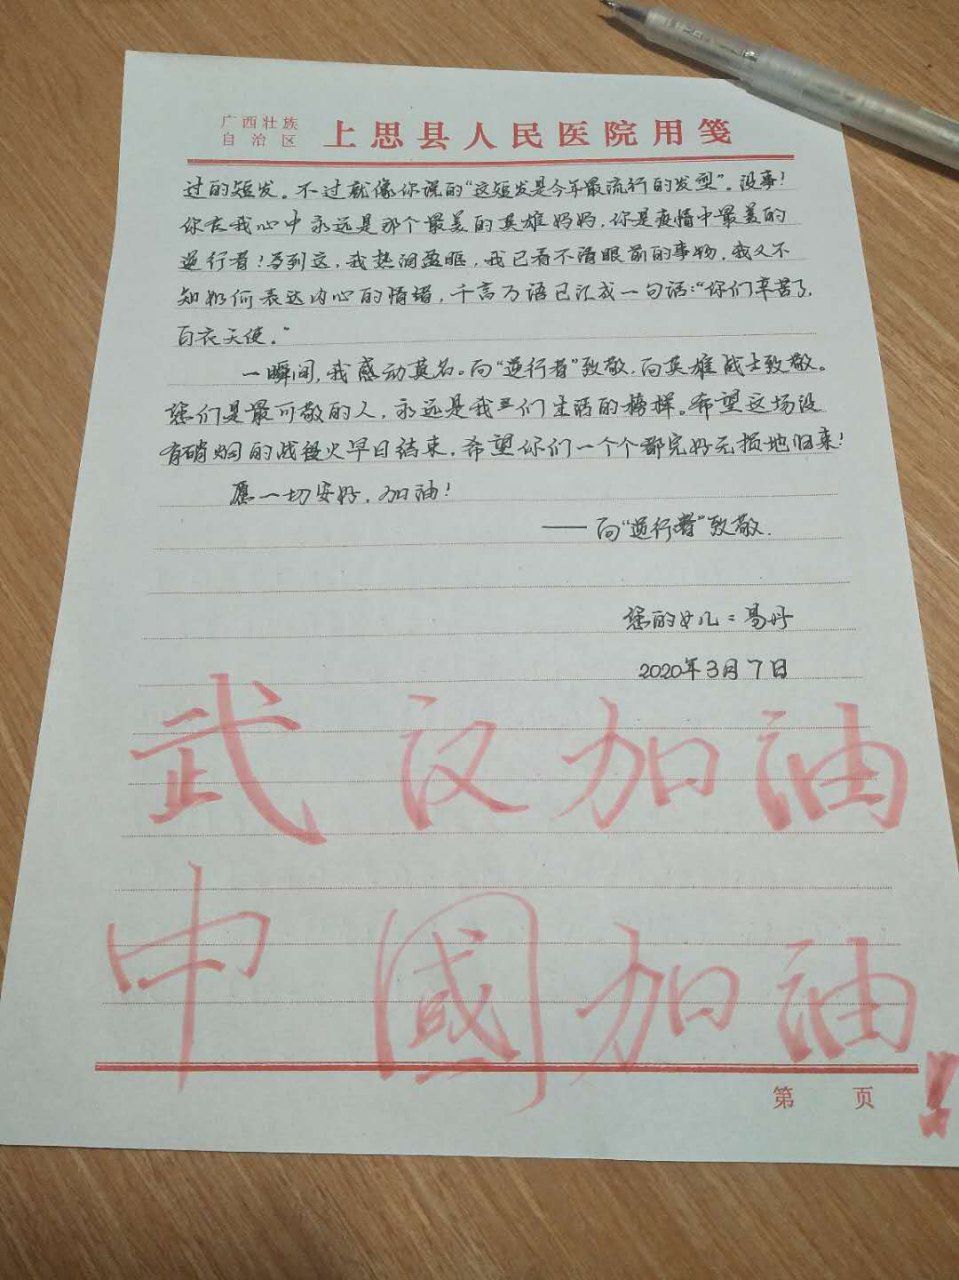 广西壮族
自治区
上思县人民医院用笺
过的短发。不过就像你说的“这短发是今年最流行的发型”。没事！
你在我心中永远是那个最美的英雄妈妈，你是疫情中最美的
逆行者！写到这，我热泪盈眶，我已看不清眼前的事物，我又不
知如何表达内心的情绪，千言万语已汇成一句话：“你们辛苦了，
白衣天使。”
一瞬间，我感动莫名。向“逆行者”致敬，向英雄战士致敬。
您们是最可敬的人，永远是我们生活的榜样。希望这场没
有硝烟的战火早日结束，希望你们一个个都完好无损地归来！
愿一切安好，加油！
——向“逆行者”致敬.
您的女儿：易丹
2020年3月7日
武汉加油
中國加油！
第 页